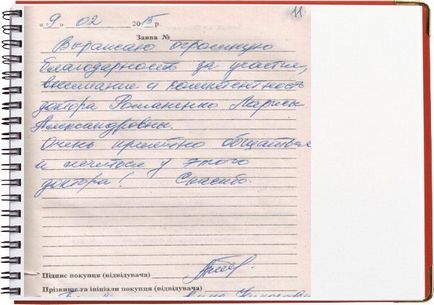 11
"9" 02 2015 р.
Заява №
Выражаю огромную
благодарность за участие,
внимание и компетентность
доктора Романенко Ларисы
Александровны.
Очень приятно общаться
и лечиться у этого
доктора! Спасибо.
Підпис покупця (відвідувача)
Прізвище та ініціали покупця (відвідувача)